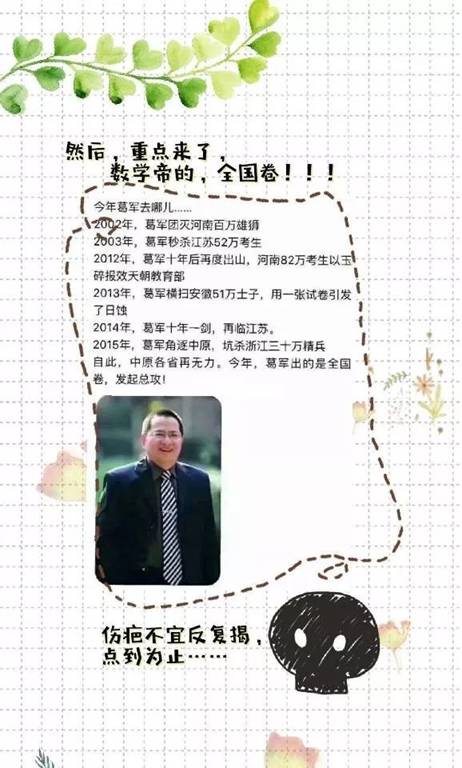 然后，重点来了，
数学帝的，全国卷！！！
今年葛军去哪儿……
2002年，葛军团灭河南百万雄狮
2003年，葛军秒杀江苏52万考生
2012年，葛军十年后再度出山，河南82万考生以玉
碎报效天朝教育部
2013年，葛军横扫安徽51万士子，用一张试卷引发
了日蚀
2014年，葛军十年一剑，再临江苏。
2015年，葛军角逐中原，坑杀浙江三十万精兵
自此，中原各省再无力。今年，葛军出的是全国
卷，发起总攻！
伤疤不宜反复揭，
点到为止……